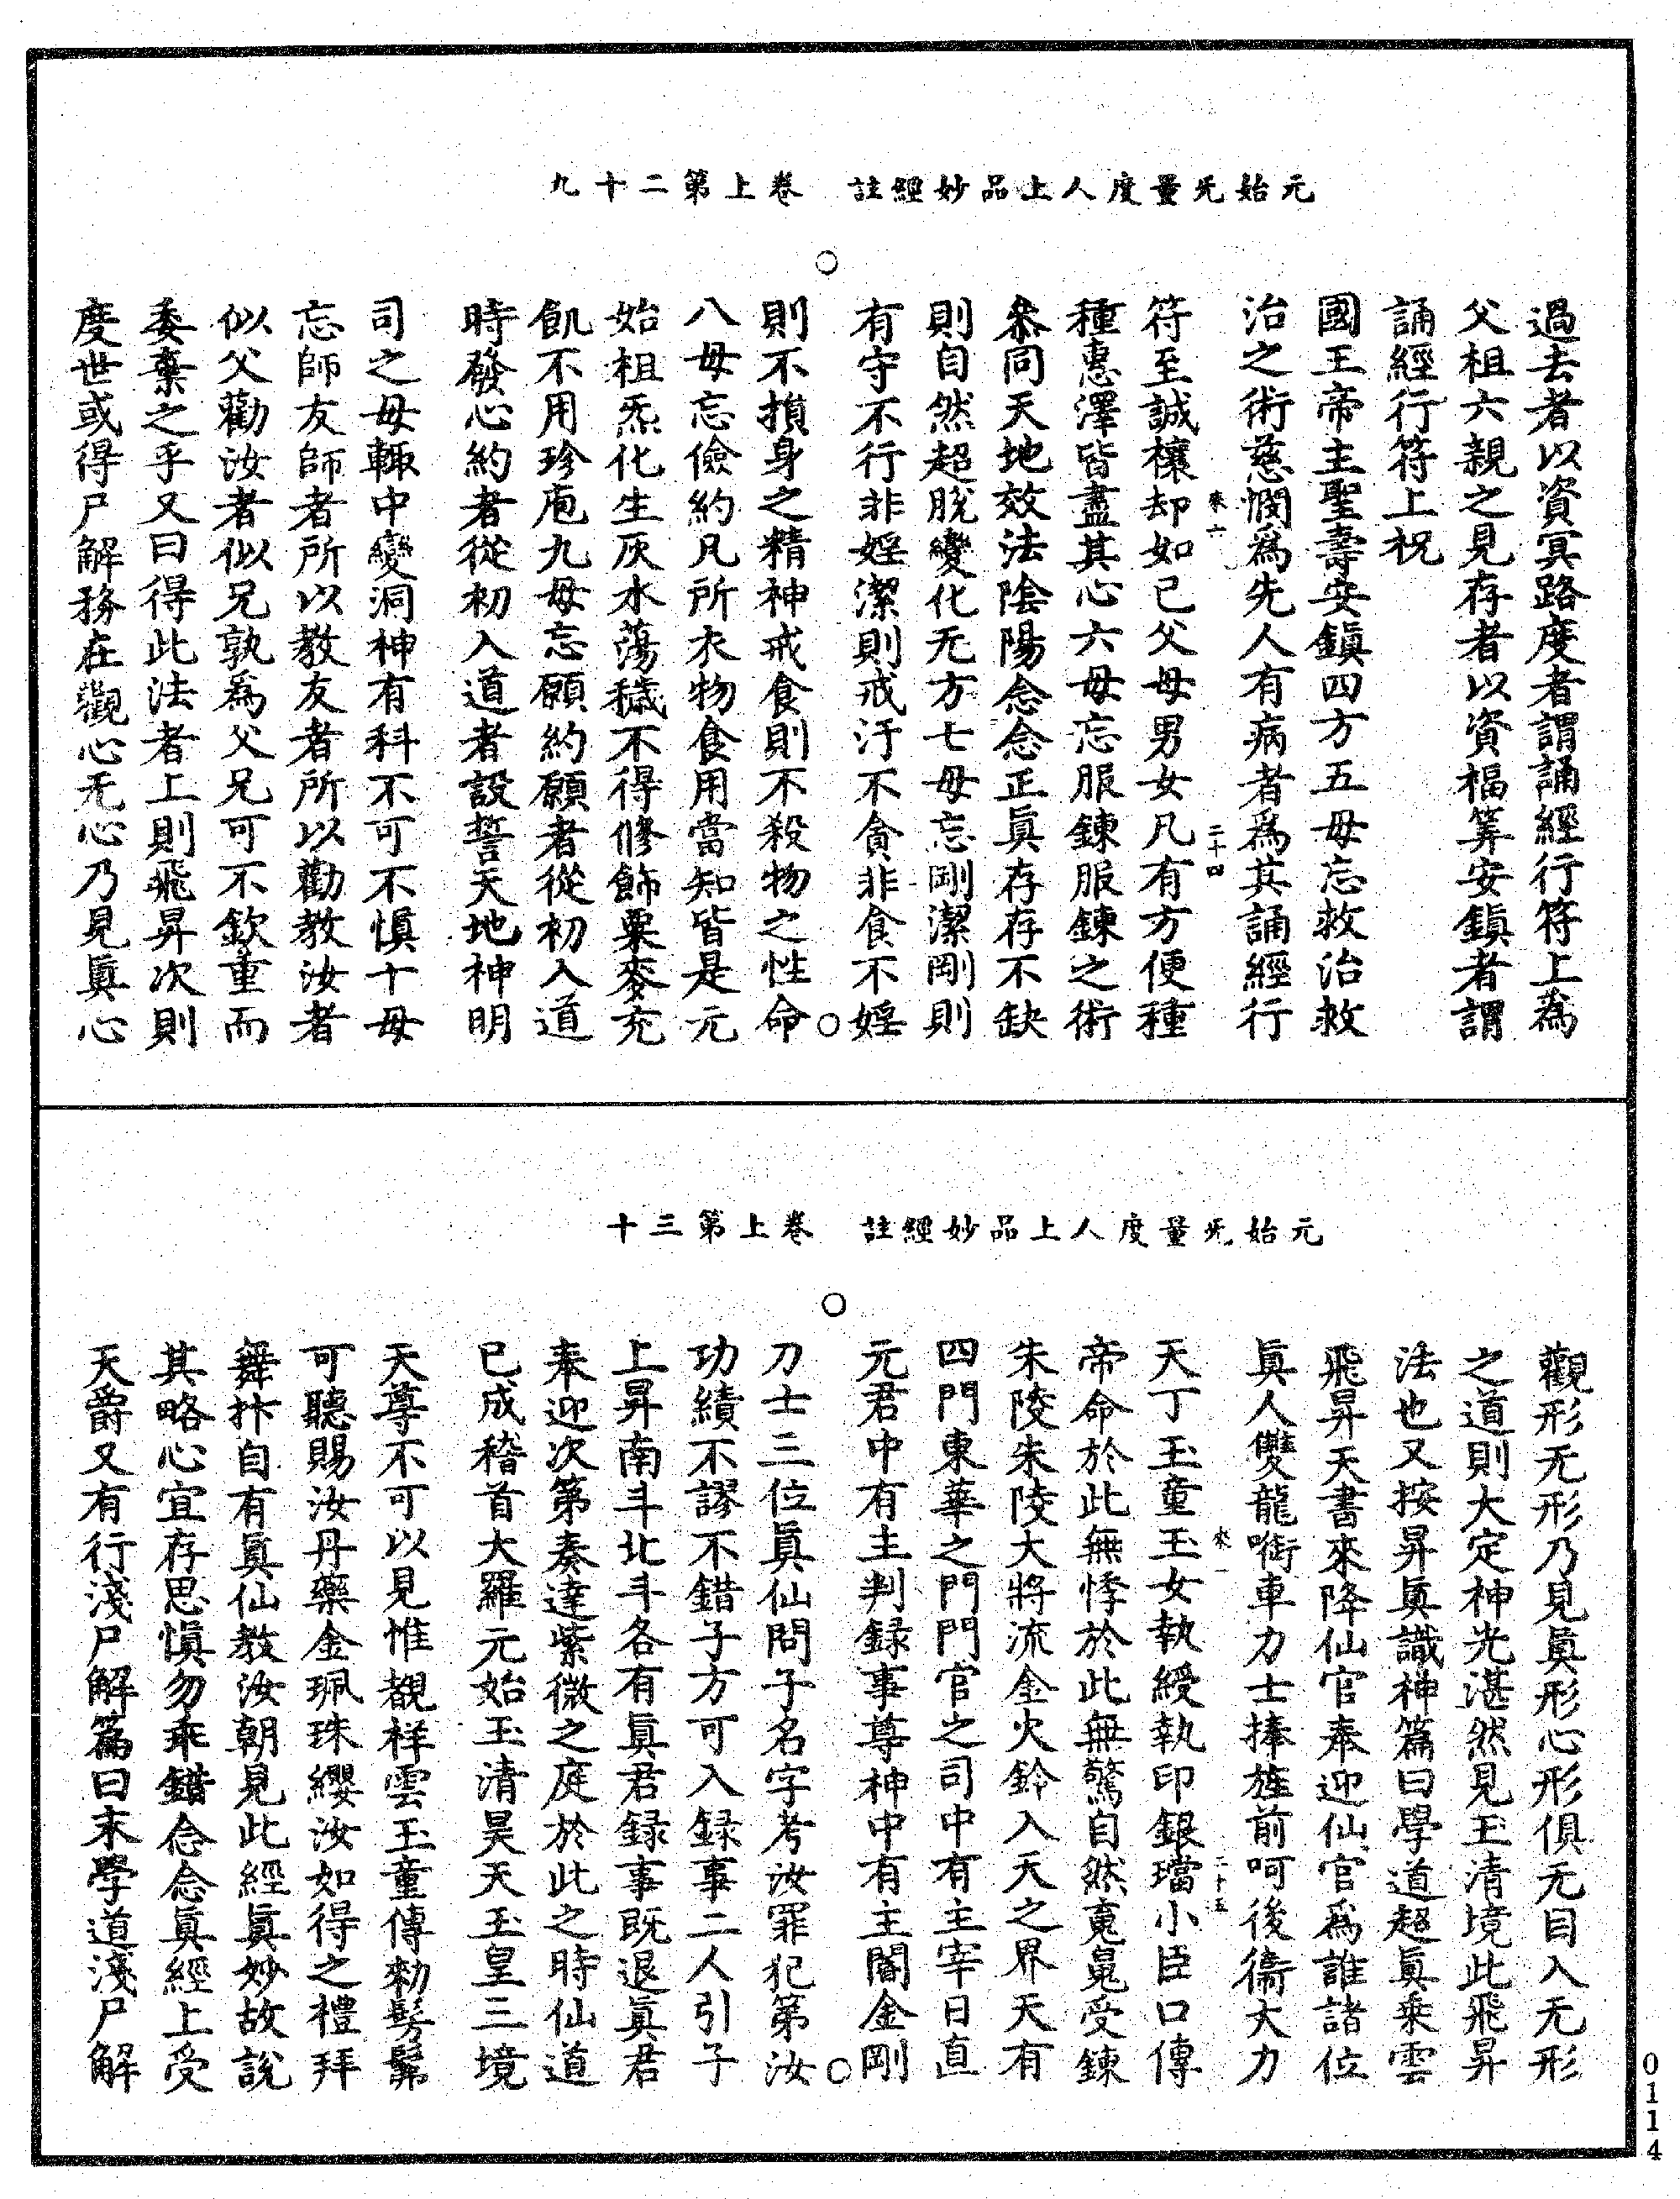 元始无量度人上品妙經註　卷上第二十九
過去者以資冥路度者謂誦經行符上為
父祖六親之見存者以資福筭安鎮者謂
誦經行符上祝
國王帝主聖壽安鎮四方五毋忘救治救
治之術慈憫為先人有病者為其誦經行
來六　二十四
符至誠禳却如己父母男女凡有方便種
種惠澤皆盡其心六毋忘服鍊服鍊之術
叅同天地效法陰陽念念正眞存存不缺
則自然超脫變化无方七毋忘剛潔剛則
有守不行非婬潔則戒汙不貪非食不婬
則不損身之精神戒食則不殺物之性命
八毋忘儉約凡所衣物食用當知皆是元
始祖炁化生灰水蕩穢不得修飾粟麥充
飢不用珍庖九毋忘願約願者從初入道
時發心約者從初入道者設誓天地神明
司之毋輙中變洞神有科不可不慎十毋
忘師友師者所以教友者所以勸教汝者
似父勸汝者似兄孰為父兄可不欽重而
委棄之乎又曰得此法者上則飛昇次則
度世或得尸解務在觀心无心乃見眞心
元始无量度人上品妙經註　卷上第三十
觀形无形乃見眞形心形俱无目入无形
之道則大定神光湛然見玉清境此飛昇
法也又按昇眞識神篇曰學道超眞乘雲
飛昇天書來降仙官奉迎仙官為誰諸位
眞人雙龍啣車力士捧旌前呵後衞大力
來一　二十五
天丁玉童玉女執綬執印銀璫小臣口傳
帝命於此無悸於此無驚自然䰟魄受鍊
朱陵朱陵大將流金火鈴入天之界天有
四門東華之門門官之司中有主宰日直
元君中有主判録事尊神中有主闇金剛
刀士三位眞仙問子名字考汝罪犯第汝
功績不謬不錯子方可入録事二人引子
上昇南斗北斗各有眞君録事既退眞君
奉迎次第奏達紫微之庭於此之時仙道
已成稽首大羅元始玉清昊天玉皇三境
天尊不可以見惟覩祥雲玉童傳勑髣髴
可聽賜汝丹藥金珮珠纓汝如得之禮拜
舞抃自有眞仙教汝朝見此經眞妙故說
其略心宜存思慎勿乖錯念念眞經上受
天爵又有行淺尸解篇曰末學道淺尸解
0114